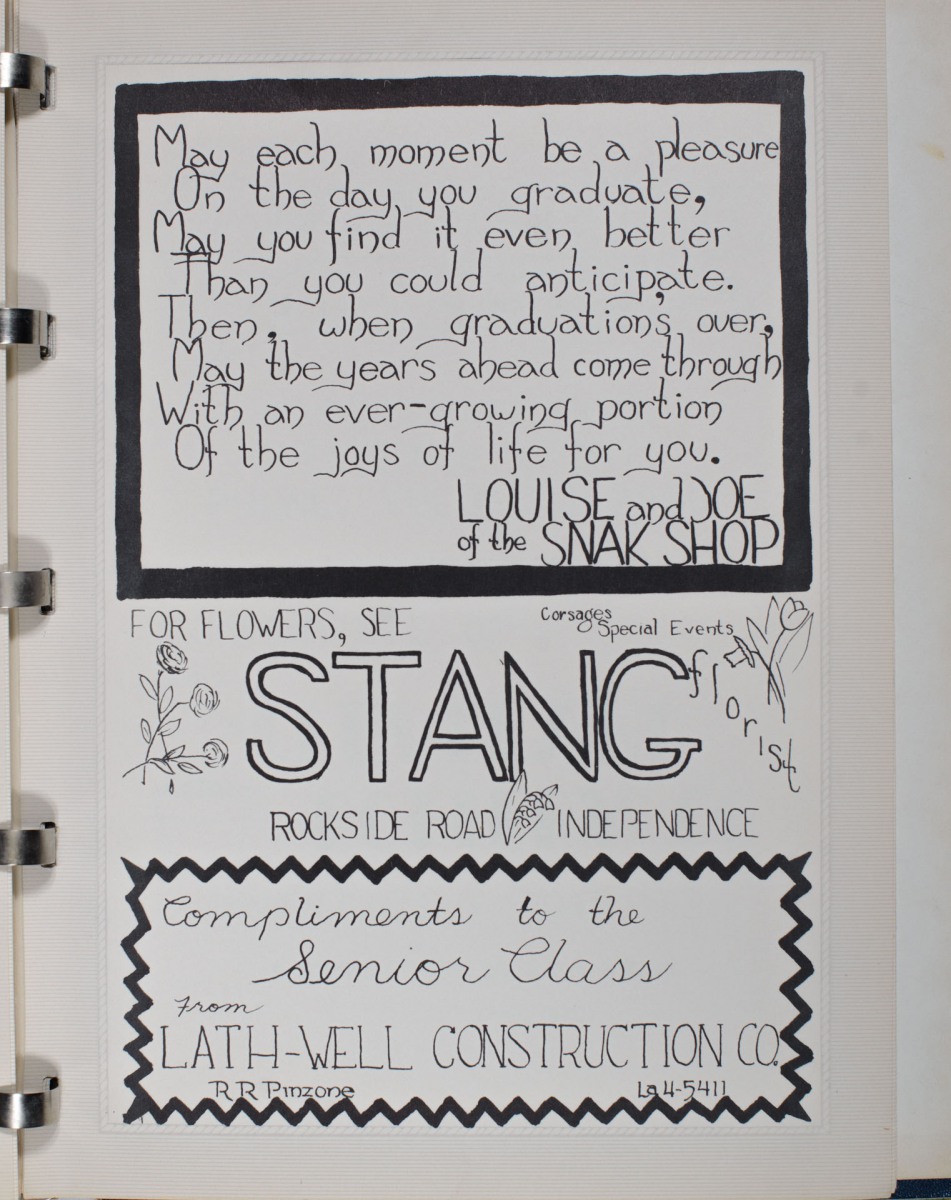 May each moment be a pleasure
On the day you graduate,
May you find it even better
Than you could anticipate.
Then, when graduations over,
May the years ahead come through
With an ever-growing portion
Of the joys of life for you.
LOUISE and JOE
of the SNAK SHOP
FOR FLOWERS, SEE
Corsages
Special Events
STANG
florist
ROCKSIDE ROAD INDEPENDENCE
Compliments to the
Senior Class
From
LATH-WELL CONSTRUCTION CO.
R R Pinzone La 4-5411